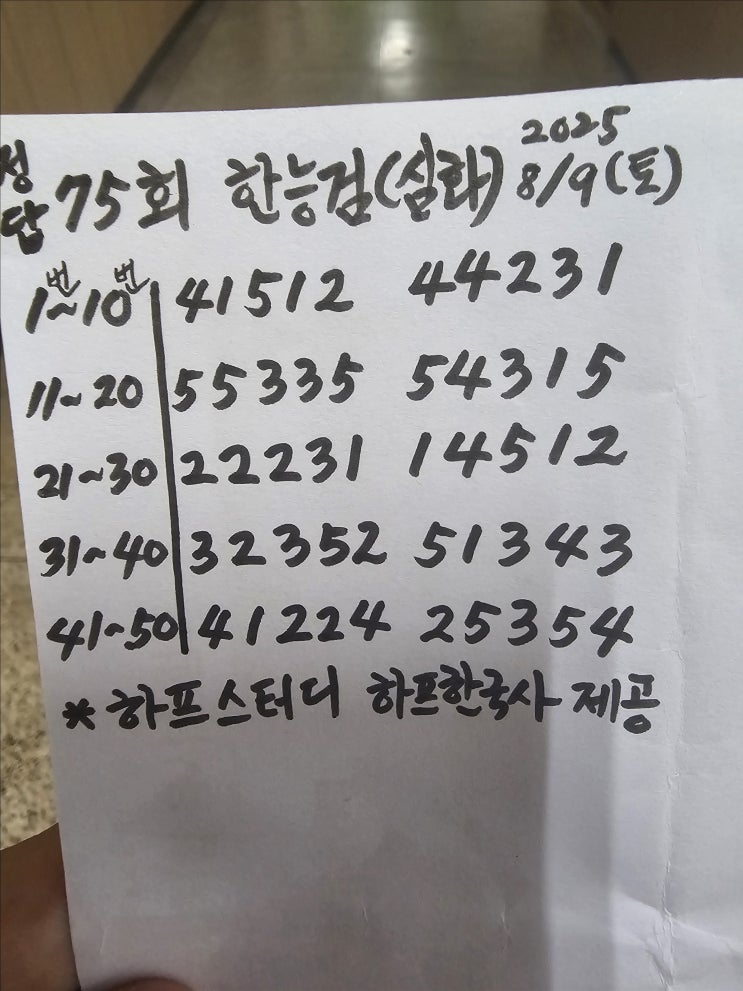 정답 75회 한능검(심화) 2025 8/9(토)
1번~10번 41512 44231
11~20 55335 54315
21~30 22231 14512
31~40 32352 51343
41~50 41224 25354
* 하프스터디 하프한국사 제공